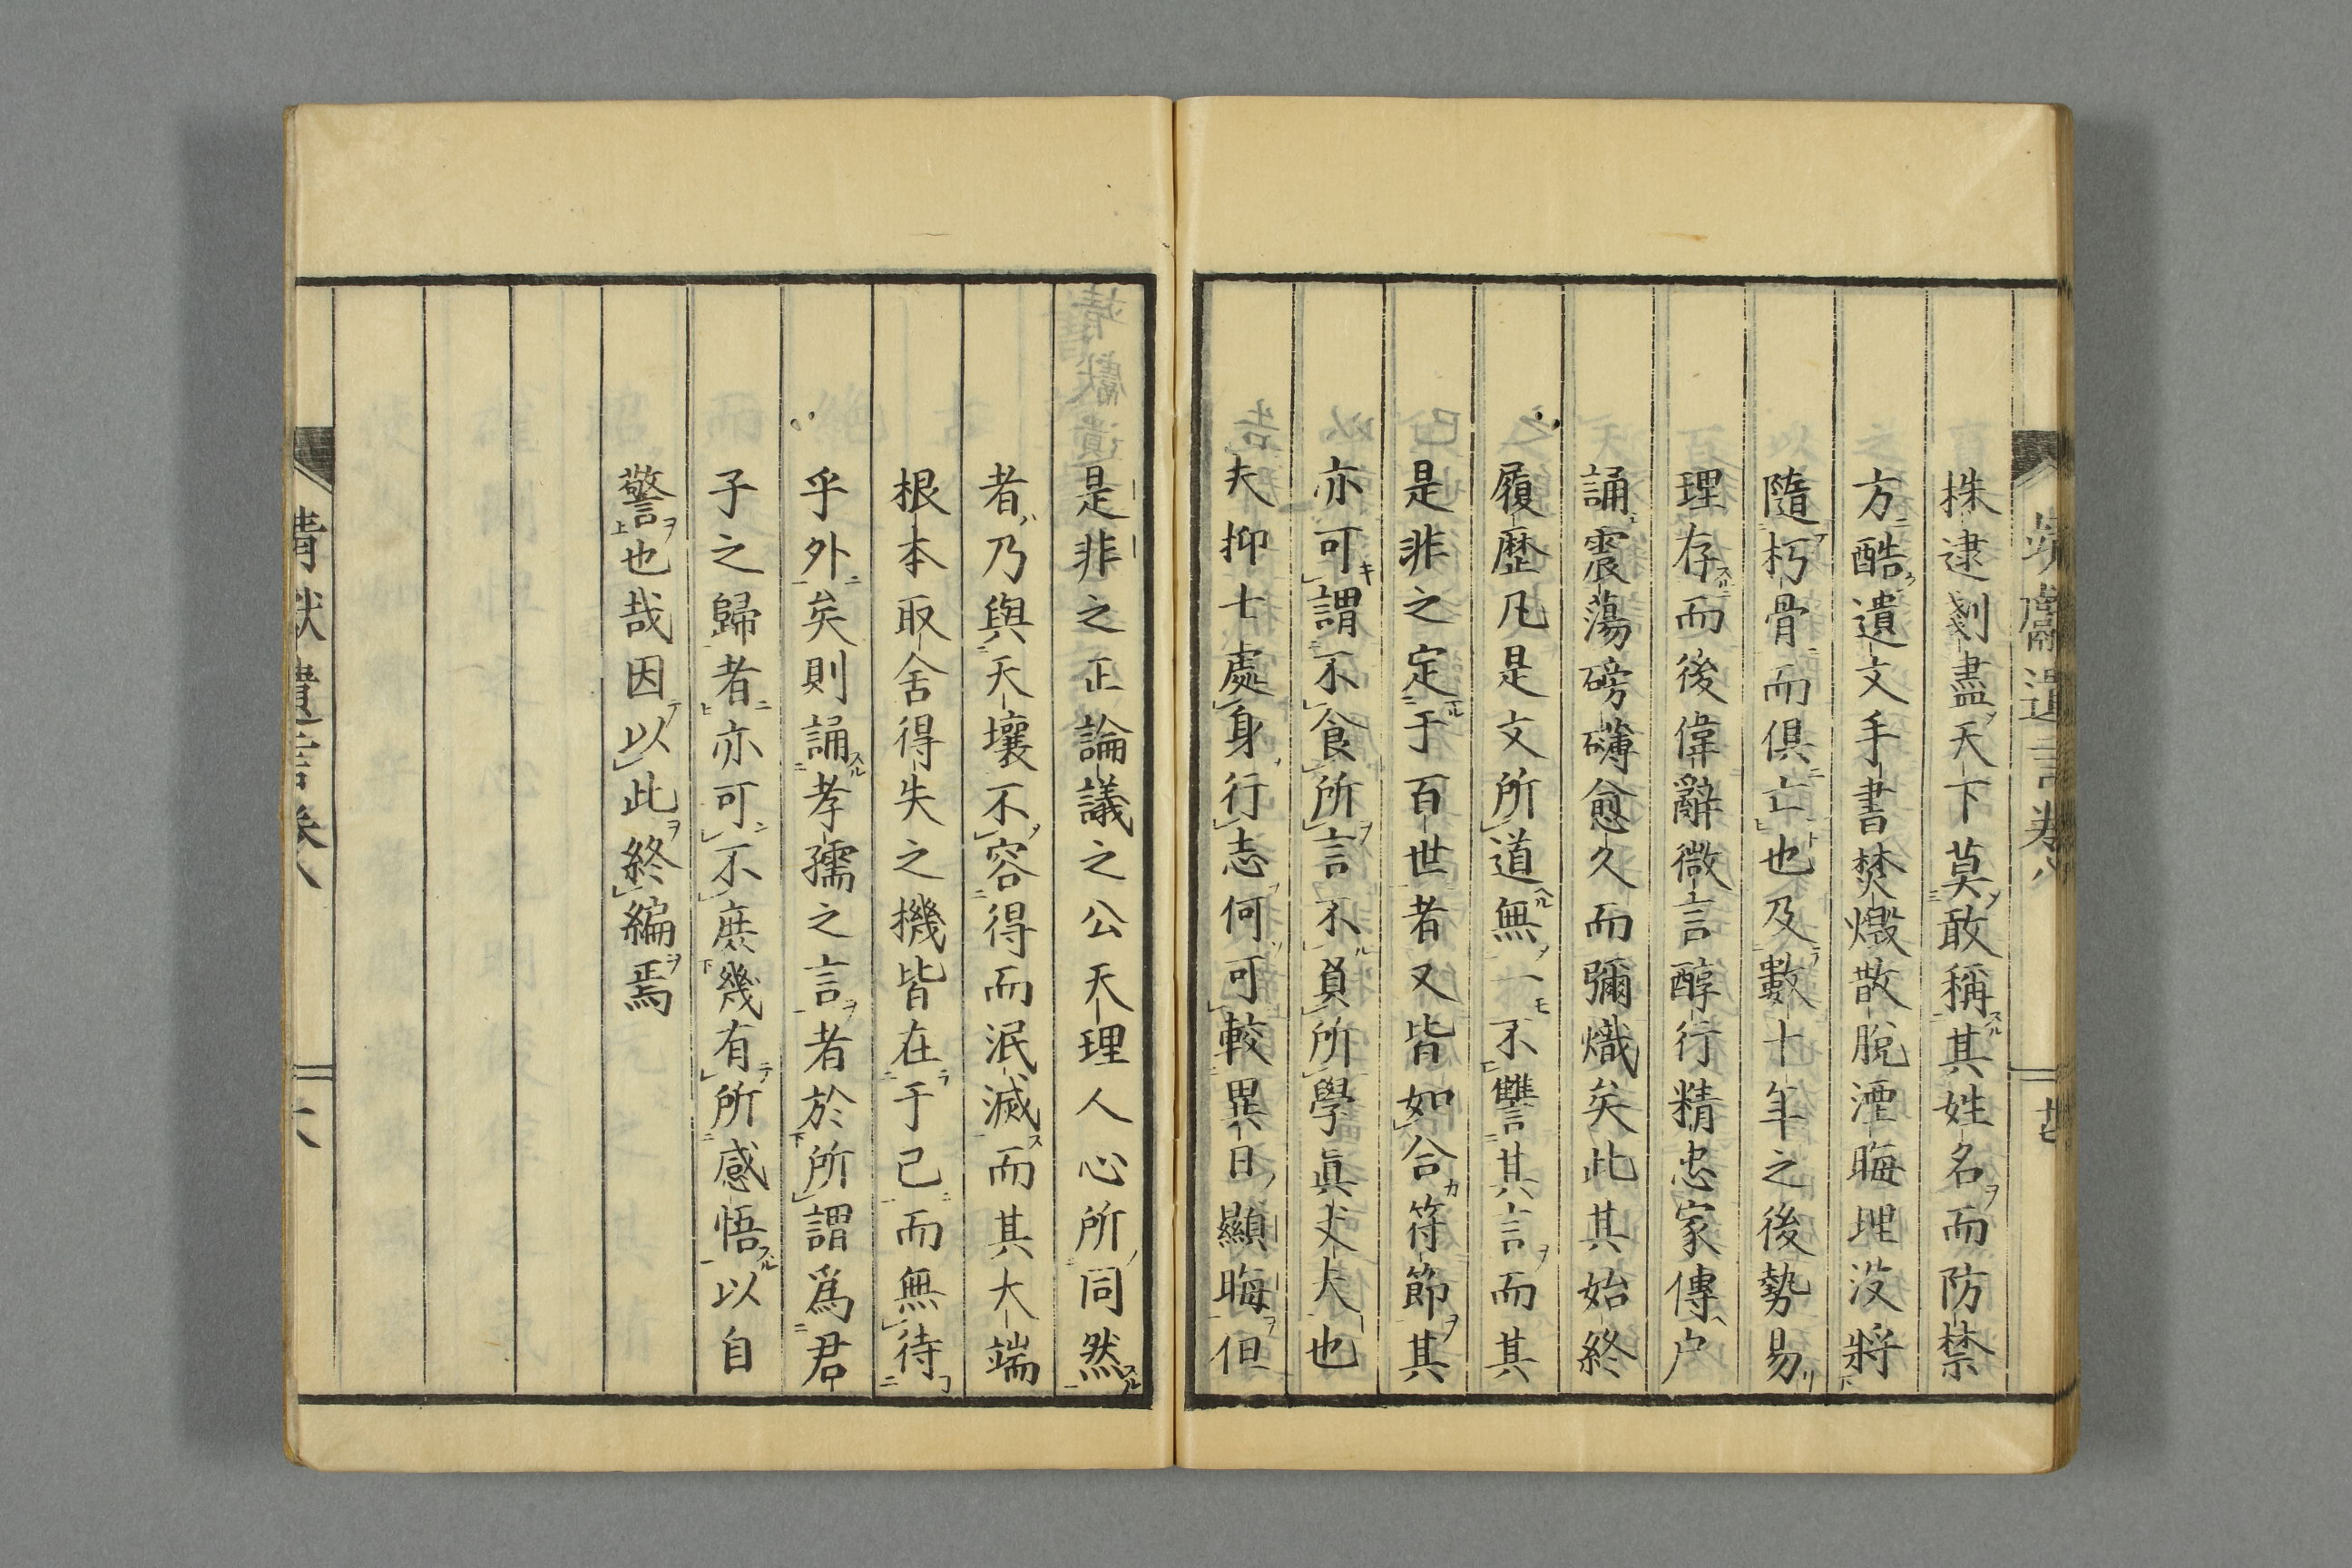 株逮剗盡天下莫敢稱其姓名而防禁
方酷遺文手書焚燬散脫湮晦埋没將
隨朽骨而俱亡也及數十年之後勢易
理存而後偉辭微言醇行精忠家傳户
誦震蕩磅礴愈久而彌熾矣此其始終
履歷凡是文所道無一不讐其言而其
是非之定于百世者又皆如合符節其
亦可謂不食所言不負所學眞丈夫也
夫抑士處身行志何可較異日顯晦但
是非之正論議之公天理人心所同然
者乃與天壤不容得而泯滅而其大端
根本取舍得失之機皆在于己而無待
乎外矣則誦孝孺之言者於所謂爲君
子之歸者亦可不庶幾有所感悟以自
警也哉因以此終編焉
靖獻遺言卷八